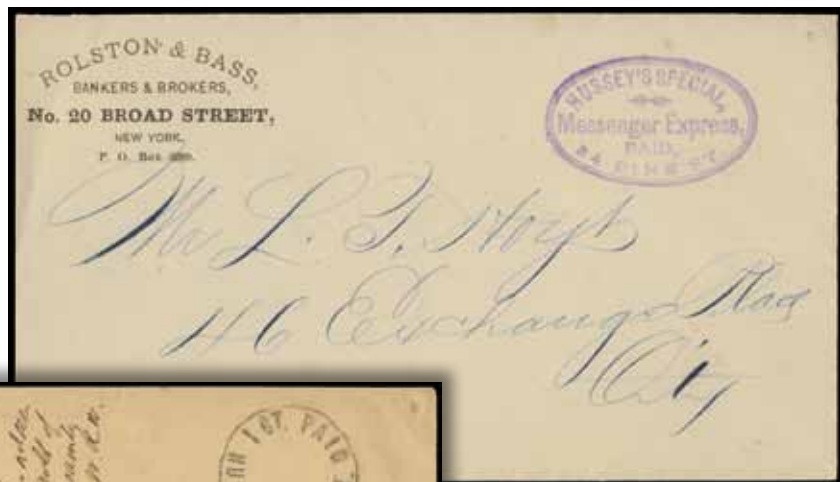 ROLSTON & BASS,
BANKERS & BROKERS,
No. 20 BROAD STREET,
NEW YORK,
P. O. Box
HUSSEY'S SPECIAL,
Messenger Express,
PAID,
54 PINE ST.
Mr L. T. Hoyt
46 Exchange Place
City
1 CT. PAID